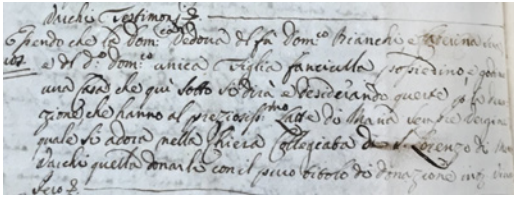 Varchi Testimonj &.
Essendo che la Dom:ca Vedova del fù Dom:co Bianchi e
e del d: Dom:co unica figlia fanciulla possiedino, e godino
una Casa che qui sotto si dirà e desiderando queste p la
zione che hanno al preziosissimo Latte di Maria sempre Vergine
quale si adora nella Chiesa Collegiata di S: Lorenzo di Mon
Varchi quella donarle con il peso titolo di donazione